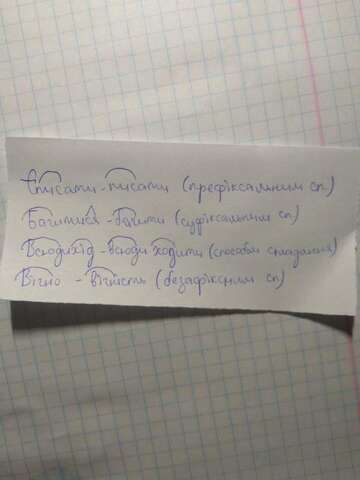 Списати - писати (префіксальним сп)
Бачитися - бачити (суфіксальним сп)
Всюдихід - всюди ходити (способом складання)
Вічно - вічність (безафіксним сп)